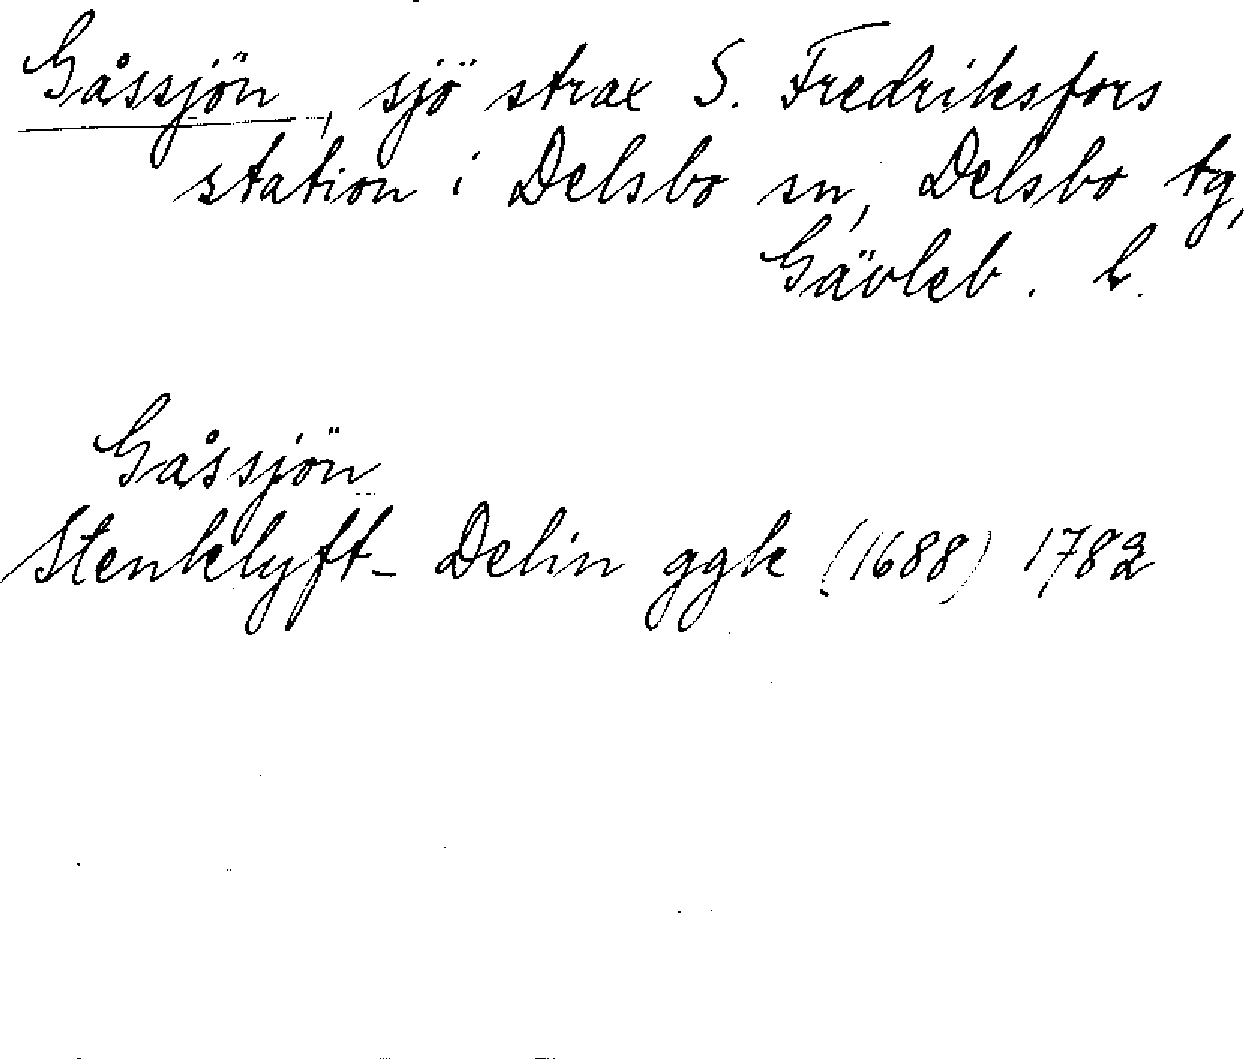 Gåssjön, sjö strax S. Fredriksfors
station i Delsbo sn, Delsbo tg,
Gävleb. L.
Gåssjön
Stenklyft- Delin ggk (1688) 1782